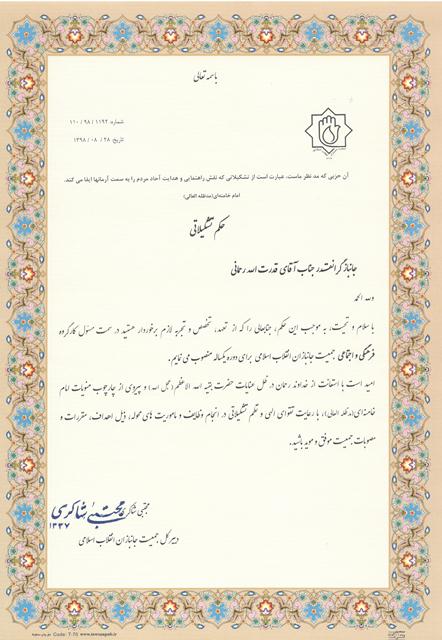 باسمه تعالی
شماره: ۱۱۹۲ / ۹۸ / ۱۱۰
تاریخ: ۲۸ / ۰۸ / ۱۳۹۸
آن حزبی که مد نظر ماست، عبارت است از تشکیلاتی که نقش راهنمایی و هدایت آحاد مردم را به سمت آرمانها ایفا می کند.
امام خامنه‌ای(مدظله العالی)
حکم تشکیلاتی
جانباز گرانقدر جناب آقای قدرت الله رحمانی
وله الحمد
با سلام و تحیت، به موجب این حکم، جنابعالی را که از تعهد، تخصص و تجربه لازم برخوردار هستید در سمت مسئول کارگروه
فرهنگی و اجتماعی جمعیت جانبازان انقلاب اسلامی برای دوره یکساله منصوب می نمایم.
امید است با استعانت از خداوند رحمان در ظل عنایات حضرت بقیه الله الاعظم(عجل الله) و پیروی از چارچوب منویات امام
خامنه‌ای(مدظله العالی)، با رعایت تقوای الهی و نظم تشکیلاتی در انجام وظایف و ماموریت های محوله، ذیل اهداف، مقررات و
مصوبات جمعیت موفق و موید باشید.
مجتبی شاکری
مجتبی شاکری
۱۳۳۷
دبیرکل جمعیت جانبازان انقلاب اسلامی
Code: 7-70 www.tawusapub.ir